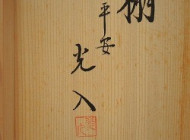 棚
平安
光入